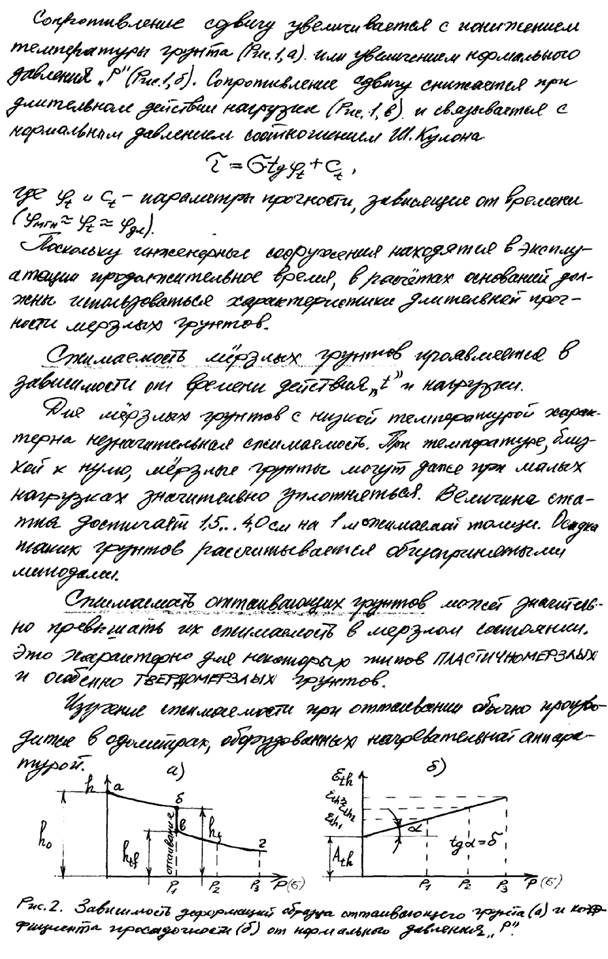 Сопротивление сдвигу увеличивается с понижением
температуры грунта (Рис.1,а) или увеличением нормального
давления „Р" (Рис.1,б). Сопротивление сдвигу снижается при
длительном действии нагрузки (Рис.1,в) и связывается с
нормальным давлением соотношением Ш.Кулона
τ = σ·tgφt + Ct ,
где φt и Ct – параметры прочности, зависящие от времени
(φмгн ≃ φt ≃ φдл).
Поскольку инженерные сооружения находятся в эксплу-
атации продолжительное время, в расчётах оснований дол-
жны использоваться характеристики длительной проч-
ности мерзлых грунтов.
Сжимаемость мёрзлых грунтов проявляется в
зависимости от времени действия „t" и нагрузки.
Для мёрзлых грунтов с низкой температурой харак-
терна незначительная сжимаемость. При температуре, близ-
кой к нулю, мёрзлые грунты могут даже при малых
нагрузках значительно уплотняться. Величина сжа-
тия достигает 1.5...4,0 см на 1 м сжимаемой толщи. Осадка
таких грунтов рассчитывается общепринятыми
методами.
Сжимаемость оттаивающих грунтов может значитель-
но превышать их сжимаемость в мерзлом состоянии.
Это характерно для некоторых типов ПЛАСТИЧНОМЕРЗЛЫХ
и особенно ТВЕРДОМЕРЗЛЫХ грунтов.
Изучение сжимаемости при оттаивании обычно произво-
дится в одометрах, оборудованных нагревательной аппара-
турой.
а)
h
а
б
в
г
оттаивание
h0
htf
ht
P1
P2
P3
P(б)
б)
εth
εth3
εth2
εth1
α
tgα = δ
Ath
P1
P2
P3
P(б)
Рис.2. Зависимость деформаций образца оттаивающего грунта (а) и коэф-
фициента просадочности (б) от нормального давления „Р"